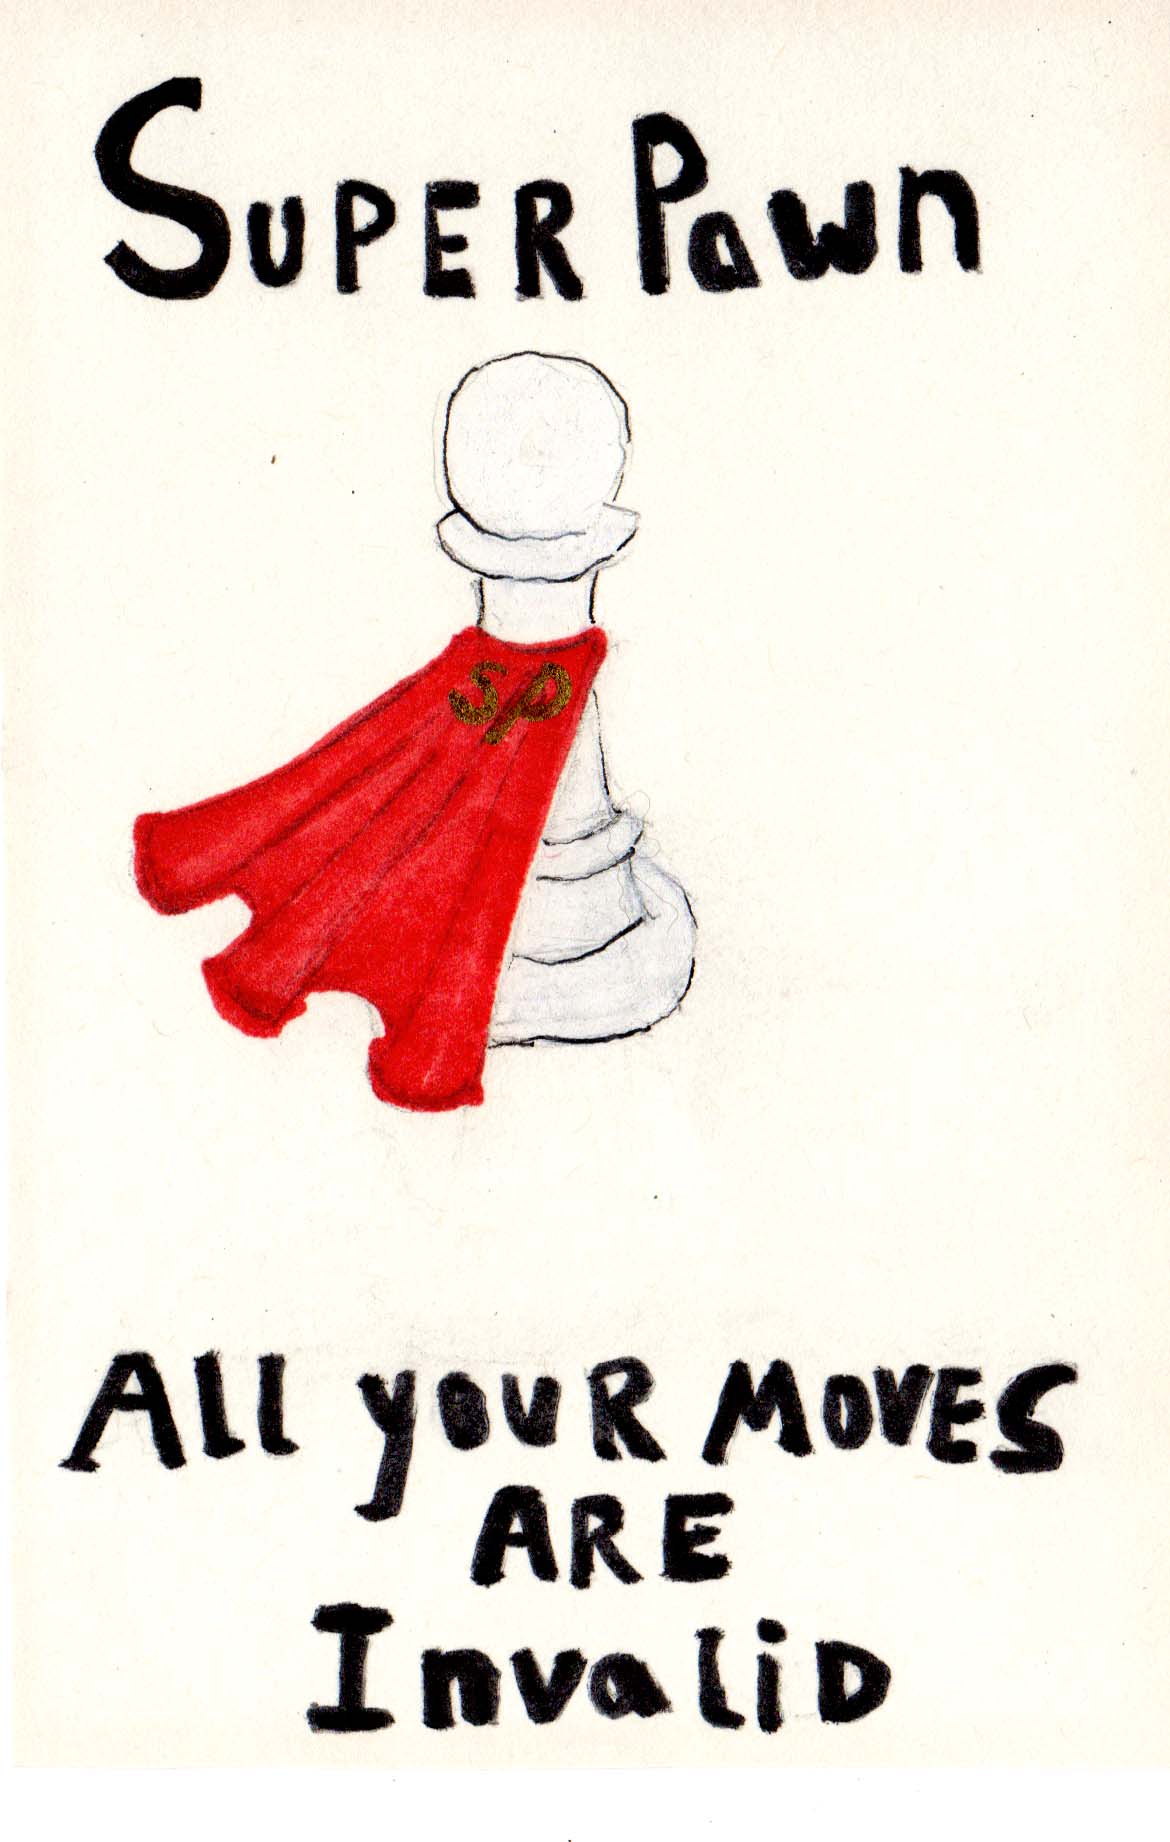 SUPER Pawn
SP
All youR MOVES
ARE
InvaliD